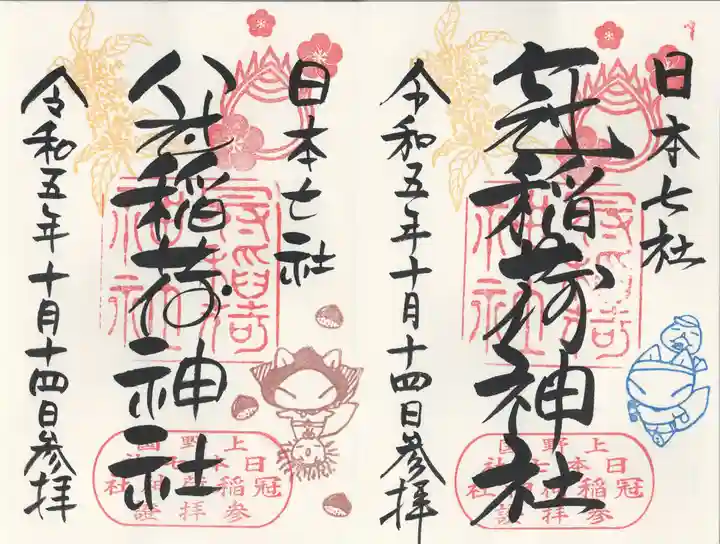 日本七社
冠稲荷神社
令和五年十月十四日参拝
冠稲荷
神社
上野國
日本七社
冠稲荷神社
参拝證
日本七社
冠稲荷神社
令和五年十月十四日参拝
冠稲荷
神社
上野國
日本七社
冠稲荷神社
参拝證